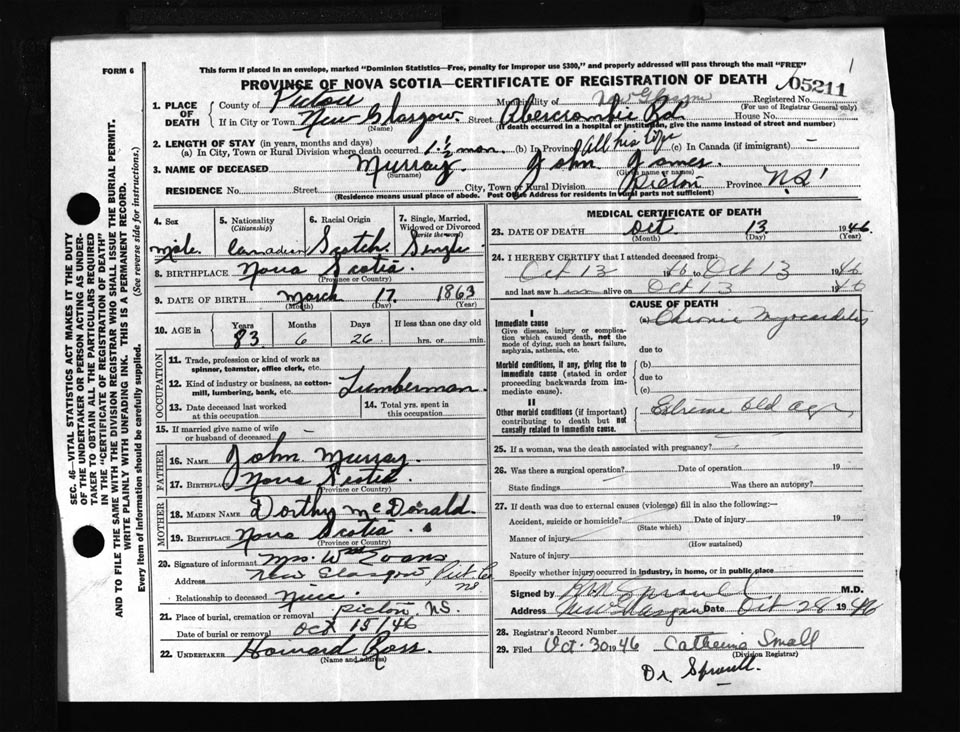 FORM 6
This form if placed in an envelope, marked "Dominion Statistics—Free, penalty for improper use $300," and properly addressed will pass through the mail "FREE"
PROVINCE OF NOVA SCOTIA—CERTIFICATE OF REGISTRATION OF DEATH
05211
1. PLACE OF DEATH { County of Pictou Municipality of N. Glasgow Registered No.
(For use of Registrar General only)
If in City or Town New Glasgow Street Abercrombie Rd. House No.
(Name) (If death occurred in a hospital or institution, give the name instead of street and number)
2. LENGTH OF STAY (in years, months and days)
(a) In City, Town or Rural Division where death occurred 1 1/2 mon. (b) In Province All his life (c) In Canada (if immigrant)
3. NAME OF DECEASED Murray John James
(Surname) (Given name or names)
RESIDENCE No. Street City, Town or Rural Division Pictou Province N.S.
(Residence means usual place of abode. Post Office Address for residents in rural parts not sufficient)
4. Sex 5. Nationality (Citizenship) 6. Racial Origin 7. Single, Married, Widowed or Divorced (write the word)
Male Canadian Scotch Single
8. BIRTHPLACE Nova Scotia
(Province or Country)
9. DATE OF BIRTH March 17 1863
(Month) (Day) (Year)
10. AGE in Years Months Days If less than one day old
83 6 26 hrs. or min.
OCCUPATION
11. Trade, profession or kind of work as spinner, teamster, office clerk, etc.
12. Kind of industry or business, as cotton-mill, lumbering, bank, etc. Lumberman
13. Date deceased last worked at this occupation
14. Total yrs. spent in this occupation
15. If married give name of wife or husband of deceased
FATHER
16. NAME John Murray
17. BIRTHPLACE Nova Scotia
(Province or Country)
MOTHER
18. MAIDEN NAME Dorthy McDonald
19. BIRTHPLACE Nova Scotia
(Province or Country)
20. Signature of informant Mrs. Wm Evans
Address New Glasgow, Pict. Co NS
Relationship to deceased Niece
21. Place of burial, cremation or removal Pictou, NS.
Date of burial or removal Oct 15/46
22. UNDERTAKER Howard Ross.
(Name and address)
MEDICAL CERTIFICATE OF DEATH
23. DATE OF DEATH Oct. 13 1946
(Month) (Day) (Year)
24. I HEREBY CERTIFY that I attended deceased from:
Oct 13 1946 to Oct 13 1946
and last saw him alive on Oct 13 1946
CAUSE OF DEATH
I
Immediate cause
Give disease, injury or complication which caused death, not the mode of dying, such as heart failure, asphyxia, asthenia, etc.
(a) Chronic Myocarditis
due to
Morbid conditions, if any, giving rise to immediate cause (stated in order proceeding backwards from immediate cause).
(b)
due to
(c)
II
Other morbid conditions (if important) contributing to death but not causally related to immediate cause.
Extreme old age
25. If a woman, was the death associated with pregnancy?
26. Was there a surgical operation? Date of operation 19
State findings Was there an autopsy?
27. If death was due to external causes (violence) fill in also the following:—
Accident, suicide or homicide? Date of injury 19
(State which)
Manner of injury
(How sustained)
Nature of injury
Specify whether injury occurred in industry, in home, or in public place
Signed by Sproull M.D.
Address New Glasgow Date Oct 28 1946
28. Registrar's Record Number
29. Filed Oct. 30 1946 Catherine Small
(Division Registrar)
Dr. Sproull.
SEC. 46—VITAL STATISTICS ACT MAKES IT THE DUTY
OF THE UNDERTAKER OR PERSON ACTING AS UNDER-
TAKER TO OBTAIN ALL THE PARTICULARS REQUIRED
IN THE "CERTIFICATE OF REGISTRATION OF DEATH"
AND TO FILE THE SAME WITH THE DIVISION REGISTRAR WHO SHALL ISSUE THE BURIAL PERMIT.
WRITE PLAINLY WITH UNFADING INK. THIS IS A PERMANENT RECORD.
Every item of information should be carefully supplied. (See reverse side for instructions.)